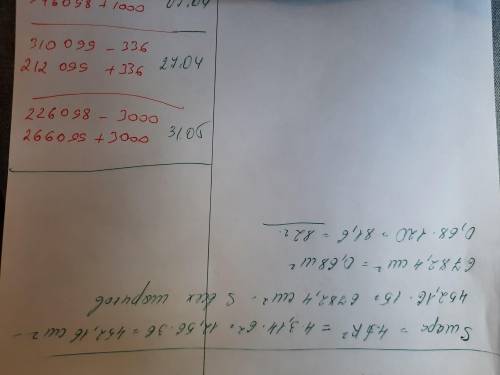 + 1000
310 095 - 336
212 095 + 336 27.04
226098 - 3000
266095 + 3000 31.05
Sшара = 4πR² = 4·3,14·6² = 12,56·36 = 452,16 см² –
452,16 · 15 = 6782,4 см² - S всех шариков
6782,4 см² = 0,68 м²
0,68·120 = 81,6 = 82 г.